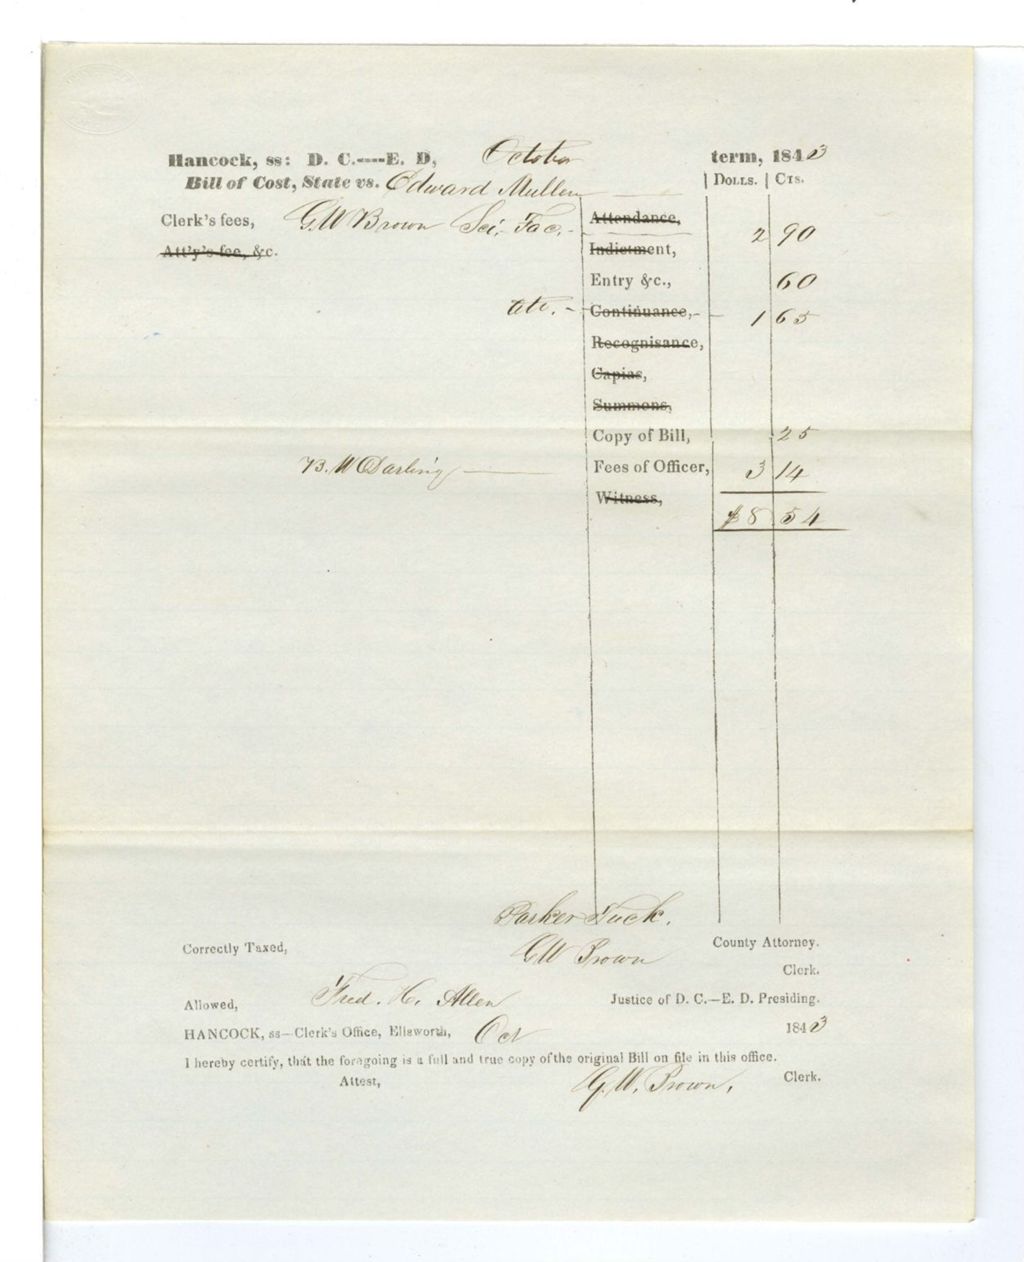 Hancock, ss: D. C.----E. D, October term, 1843
Bill of Cost, State vs. Edward Mullen DOLLS. CTS.
Clerk's fees, G.W Brown Sci. Fac. - Attendance, 2 90
Att'y's fee, &c. Indictment,
Entry &c., 60
Continuance, 1 65
Recognisance,
Capias,
Summons,
Copy of Bill, 25
B. W Darling Fees of Officer, 3 14
Witness,
$8 54
Parker Tuck.
Correctly Taxed, County Attorney.
GW Brown Clerk.
Allowed, Fred. H. Allen Justice of D. C.—E. D. Presiding.
HANCOCK, ss—Clerk's Office, Ellsworth, Oct 1843
I hereby certify, that the foregoing is a full and true copy of the original Bill on file in this office.
Attest, G. W. Brown, Clerk.